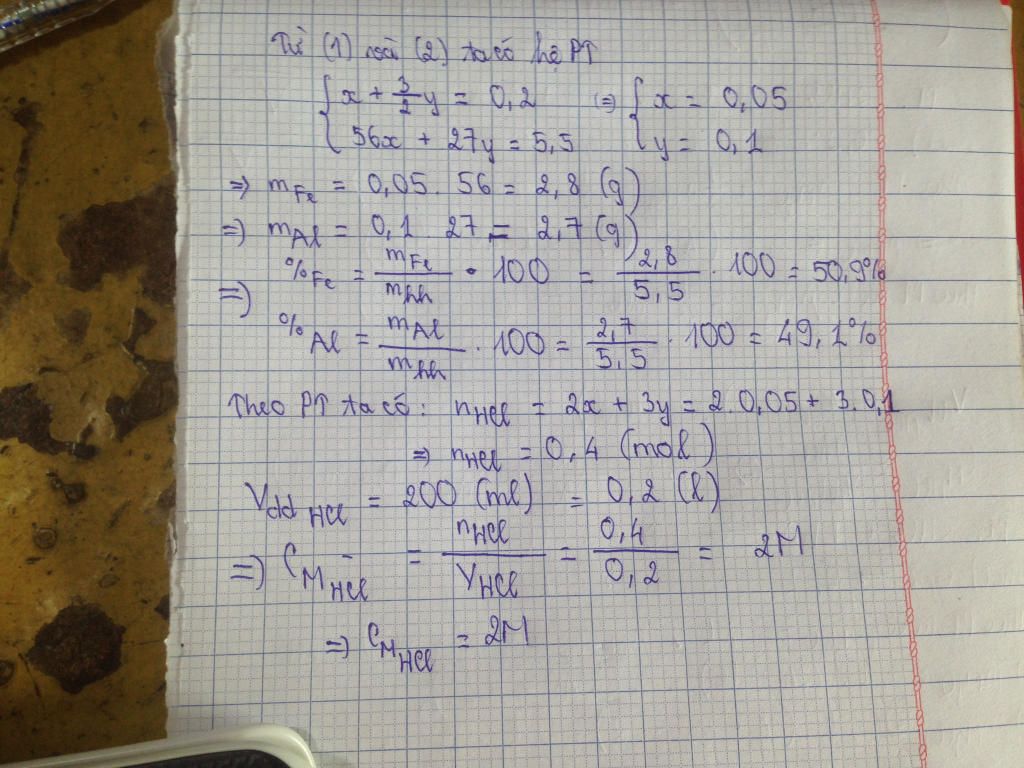 Từ (1) và (2) ta có hệ PT
{ x + 3/2 y = 0,2 ⇒ { x = 0,05
{ 56x + 27y = 5,5 { y = 0,1
⇒ mFe = 0,05 . 56 = 2,8 (g)
⇒ mAl = 0,1 . 27 = 2,7 (g)
⇒ %Fe = mFe/mhh . 100 = 2,8/5,5 . 100 = 50,9%
%Al = mAl/mhh . 100 = 2,7/5,5 . 100 = 49,1%
Theo PT ta có: nHCl = 2x + 3y = 2.0,05 + 3.0,1
⇒ nHCl = 0,4 (mol)
Vdd HCl = 200 (ml) = 0,2 (l)
⇒ CM HCl = nHCl/VHCl = 0,4/0,2 = 2M
⇒ CM HCl = 2M